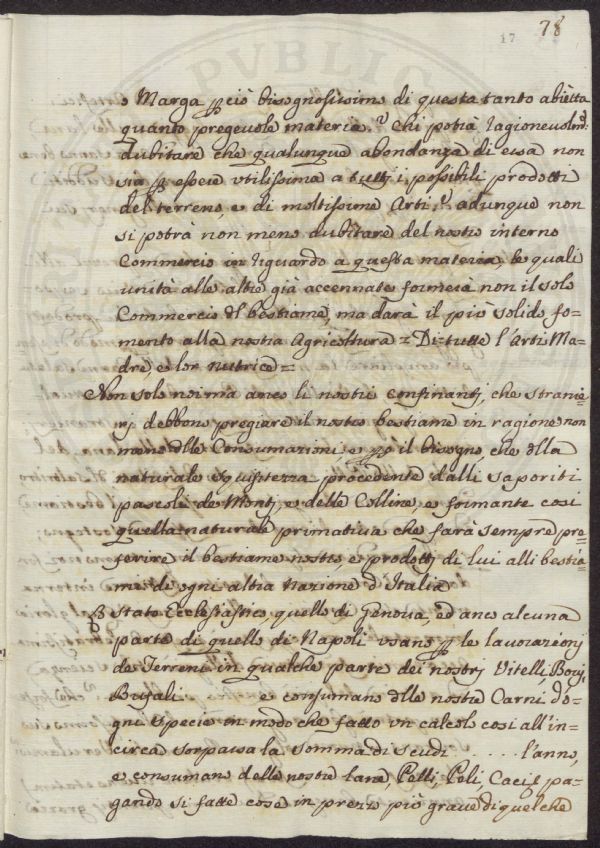 17 78
o Marga ꝑciò bisognosissimo di questa tanto abietta
quanto pregevole materia.? Chi potrà ragionevolm:
dubitare che qualunque abondanza di essa non
sia ꝑ essere utilissima a tutti i possibili prodotti
del terreno, e di moltissime Arti,? adunque non
si potrà non meno dubitare del nostro interno
Commercio in riguardo a questa materia, le quali
unita alle altre già accennate formerà non il solo
Commercio dl bestiame, ma darà il più solido fo=
mento alla nostra Agricoltura = Di tutte l'Arti Ma=
dre, e lor nutrice =
Non solo noi ma anco li nostri confinanti, che stranie=
rj debbono pregiare il nostro bestiame in ragione non
meno dlle Consumazioni e ꝑ il bisogno, che dlla
naturale squisitezza procedente dalli saporiti
pascoli de Montj, e delle Colline, e formante cosi
quella naturale primativa che farà sempre pre=
ferire il bestiame nostro, e prodotti di lui alli bestia=
mi di ogni altra Nazione d'Italia
Stato Ecclesiastico, quello di Genova, ed anco alcuna
parte di quello di Napoli usano ꝑ le lavorazionj
de Terreni in qualche parte dei nostrj Vitelli Bovi,
Bufali e consumano dlle nostre Carni d'o=
gni specie in modo che fatto un calcolo cosi all'in=
circa sorpassa la somma di scudi ..... l'anno,
e consumano delle nostre lane, Pelli, Peli, Caci e pa=
gando si fatte cose in prezzo più grave di quel che